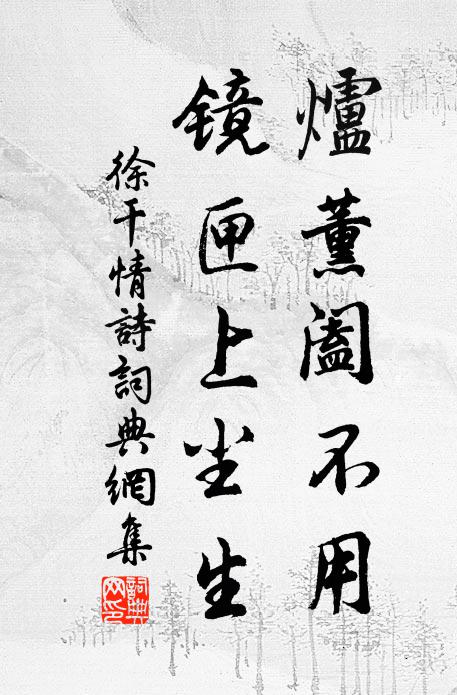 爐薰阖不用
镜匣上尘生
徐干情詩詞典網集
詞典